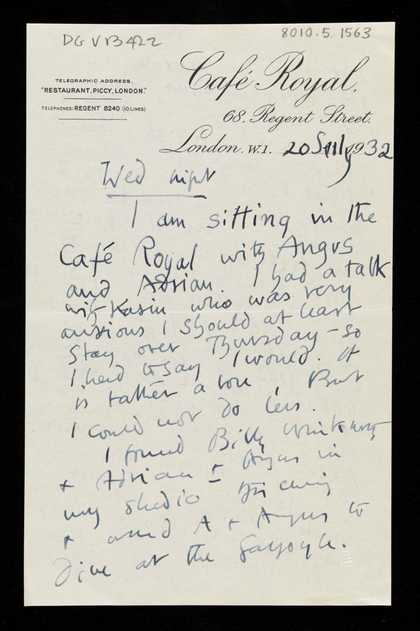 DG VB422
8010.5.1563
TELEGRAPHIC ADDRESS.
"RESTAURANT, PICCY, LONDON."
TELEPHONES: REGENT 8240 (10 LINES)
Café Royal.
68, Regent Street.
London. W.1. 20 July 1932
Wed night
I am sitting in the
Café Royal with Angus
and Adrian. I had a talk
with Karin who was very
anxious I should at least
stay over Thursday – so
I had to say I would. It
is rather a bore, But
I could not do less.
I found Billy
+ Adrian + Angus in
my studio this evening
+ asked A + Angus to
dine at the Gargoyle.